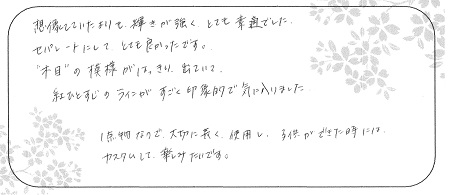 想像していたよりも、輝きが強く、とても素適でした。
セパレートにして、とても良かったです。
"木目"の模様がはっきり出ていて、
紅ひとすじのラインがすごく印象的で気に入りました。
1点物なので、大切に長く使用し、子供ができた時には、
カスタムして、楽しみたいです。